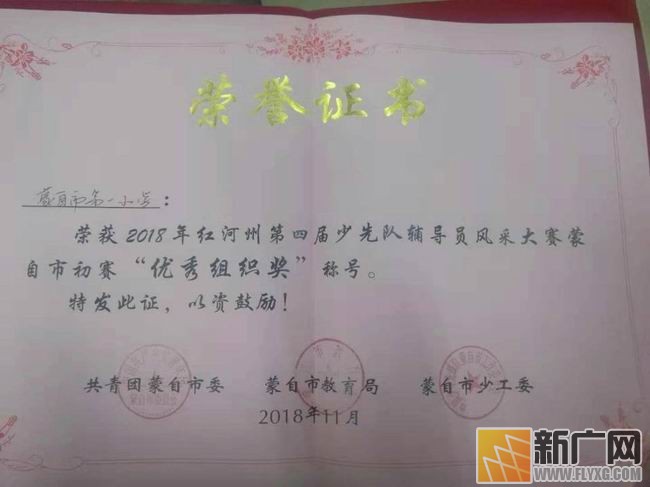 荣誉证书
蒙自市第一小学：
荣获2018年红河州第四届少先队辅导员风采大赛蒙
自市初赛“优秀组织奖”称号。
特发此证，以资鼓励！
共青团蒙自市委 蒙自市教育局 蒙自市少工委
2018年11月
新广网
WWW.FLYXG.COM